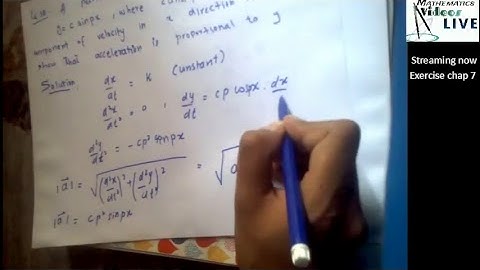 = c sinpx , where
component of velocity in x direction
show that acceleration is proportional to y
Solution. dx/dt = K (constant)
d²x/dt² = 0 , dy/dt = cp cospx . dx/
d²y/dt² = -cp² sinpx
|a⃗| = √((d²x/dt²)² + (d²y/dt²)²) = √0
|a⃗| = cp² sinpx
MATHEMATICS
Videos
LIVE
Streaming now
Exercise chap 7